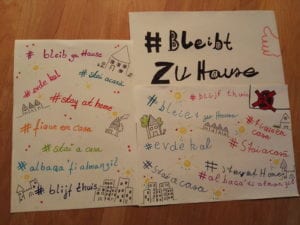 # Bleibt
Zu Hause
# bleib zu Hause
# evde kal
# stai a casa
# stay at home
# stai a casa
# albaqa' fi almanzil
# blijf thuis
# blijf thuis
# bleibt zu Hause
# evde kal
# stai a casa
# stay at Home
# stai a casa
# albaqa' fi almanzil